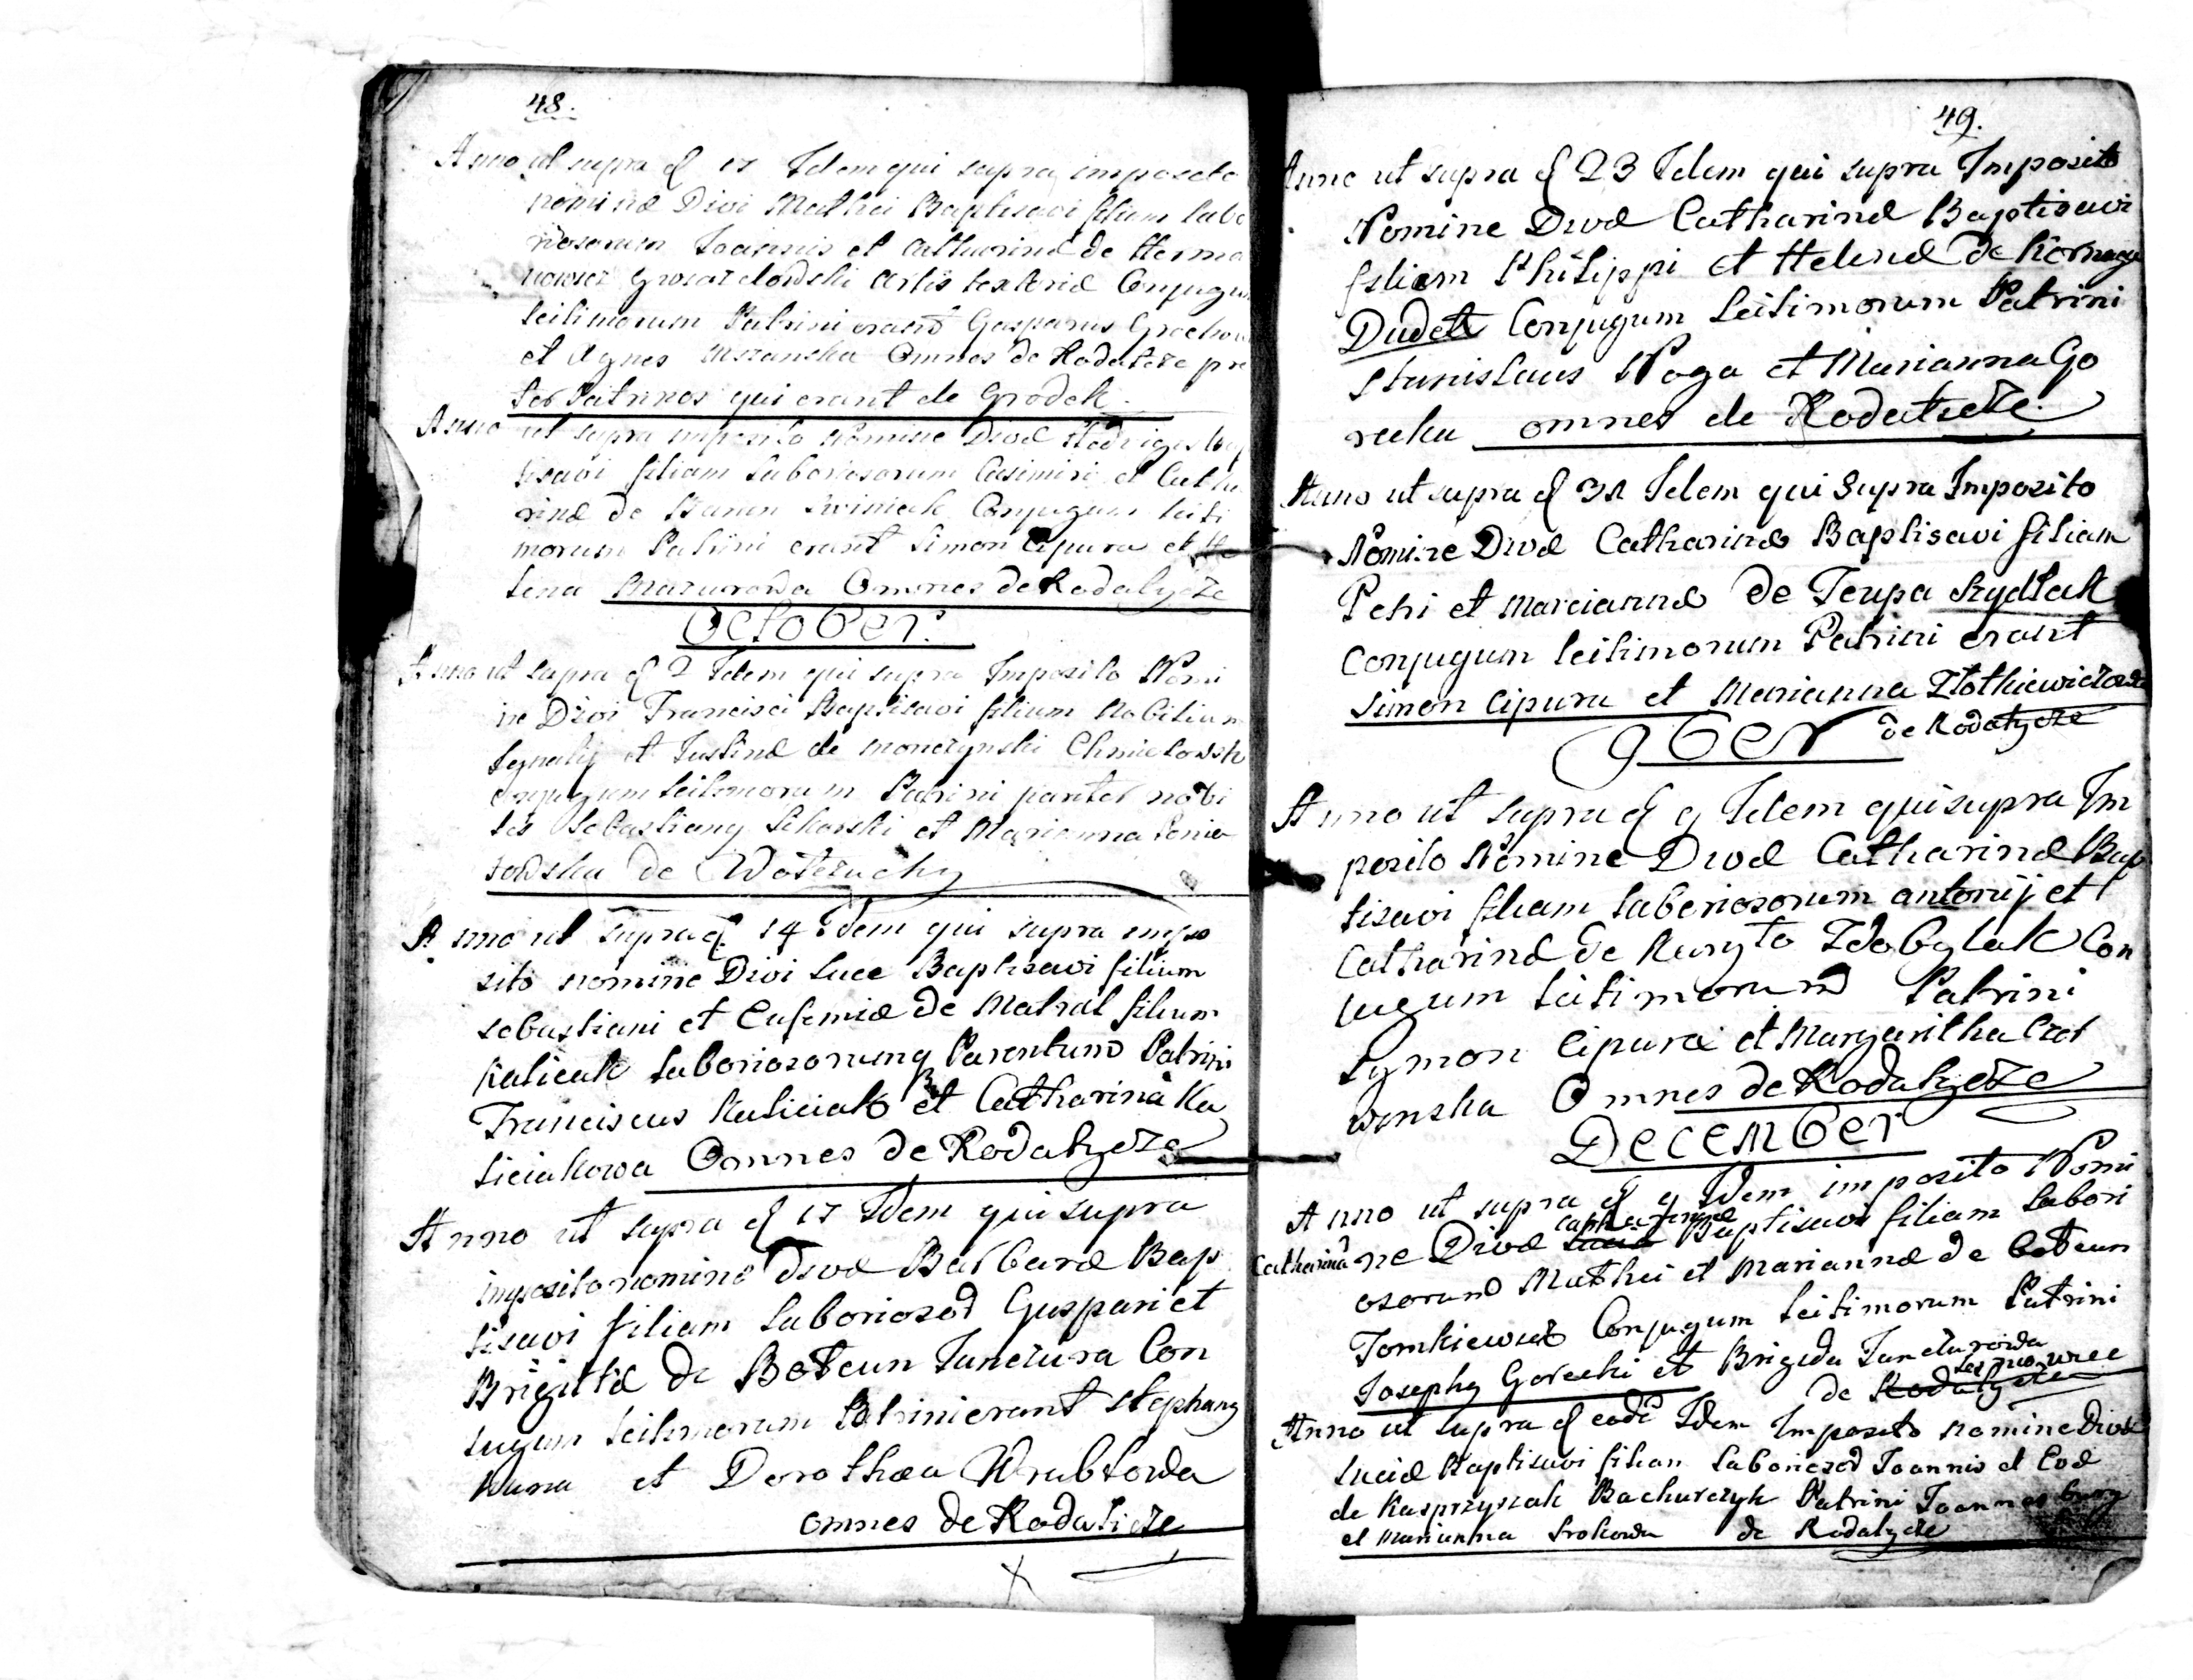 48.
Anno ut supra d 17 Idem qui supra imposito
nomine Divi Mathei Baptisavi filium labo
riosorum Joannis et Catharinæ de Herma
artis textoriæ Conjugum
leitimorum Patrini erant Gasparus
et Agnes Omnes de Rodatcze pre
ter Patrinos qui erant de Grodek.
Anno ut supra imposito Nomine Divæ Hedvigis Bap
tisavi filiam Laboriosorum Casimiri et Catha
rinæ de Conjugum leiti
morum Patrini erant Simon Cipura et He
lena Mazurowa Omnes de Rodatycze
October.
Anno ut supra d 2 Idem qui supra Imposito Nomi
ne Divi Francisci Baptisavi filium Nobilium
Ignatij et Justinæ de Monczynski Chmielowsk
Conjugum leitimorum Patrini pariter nobi
les Sebastiany Sikorski et Marianna
de
Anno ut supra d 14 Idem qui supra impo
sito nomine Divi Luce Baptisavi filium
Sebastiani et Eufemiæ de Matral filium
Kaliciak Laboriosorumq Parentum Patrini
Franciscus Kaliciak et Catharina Ka
liciakowa Omnes de Rodatycze
Anno ut supra d 17 Idem qui supra
imposito nomine Divæ Barbaræ Bap
tisavi filiam Laboriosor Gaspari et
Brigittæ de Boteun Janczura Con
jugum leitimorum Patrini erant Stephany
et Dorothæa Wrublowa
omnes de Rodaticze
49.
Anno ut supra d 23 Idem qui supra Imposito
Nomine Divæ Catharinæ Baptisavi
filiam Philippi et Helenæ de
Dudek Conjugum Leitimorum Patrini
Stanislaus Noga et Marianna Go
recka omnes de Rodatycze.
Anno ut supra d 31 Idem qui Supra Imposito
Nomine Divæ Catharinæ Baptisavi filiam
Petri et Mariannæ de Teupa Szydlak
Conjugum leitimorum Patrini erant
Simon Cipura et Marianna Zlotkiewiczowa
de Rodatycze
9ber
Anno ut supra d 9 Idem qui supra Im
posito Nomine Divæ Catharinæ Bap
tisavi filiam Laboriosorum Antonij et
Catharinæ de Kuryto Zdobylak Con
jugum leitimorum Patrini
Symon Cipura et Margaritha Czer
winska Omnes de Rodatycze
December
Anno ut supra d 9 Idem imposito Nomi
Catharinæ
Catharinæ ne Divæ Luciæ Baptisavi filiam Labori
osorum Mathei et Mariannæ de Boteun
Tomkiewicz Conjugum Leitimorum Patrini
Josephy Gorecki et Brigida Janczurowa
de Rodatycze
Anno ut supra d eadem Idem Imposito nomine Divæ
Luciæ Baptisavi filiam Laboriosor Joannis et Evæ
de Kasprzyszak Bachurczyk Patrini Joannes
et Marianna Srokowa de Rodatycze